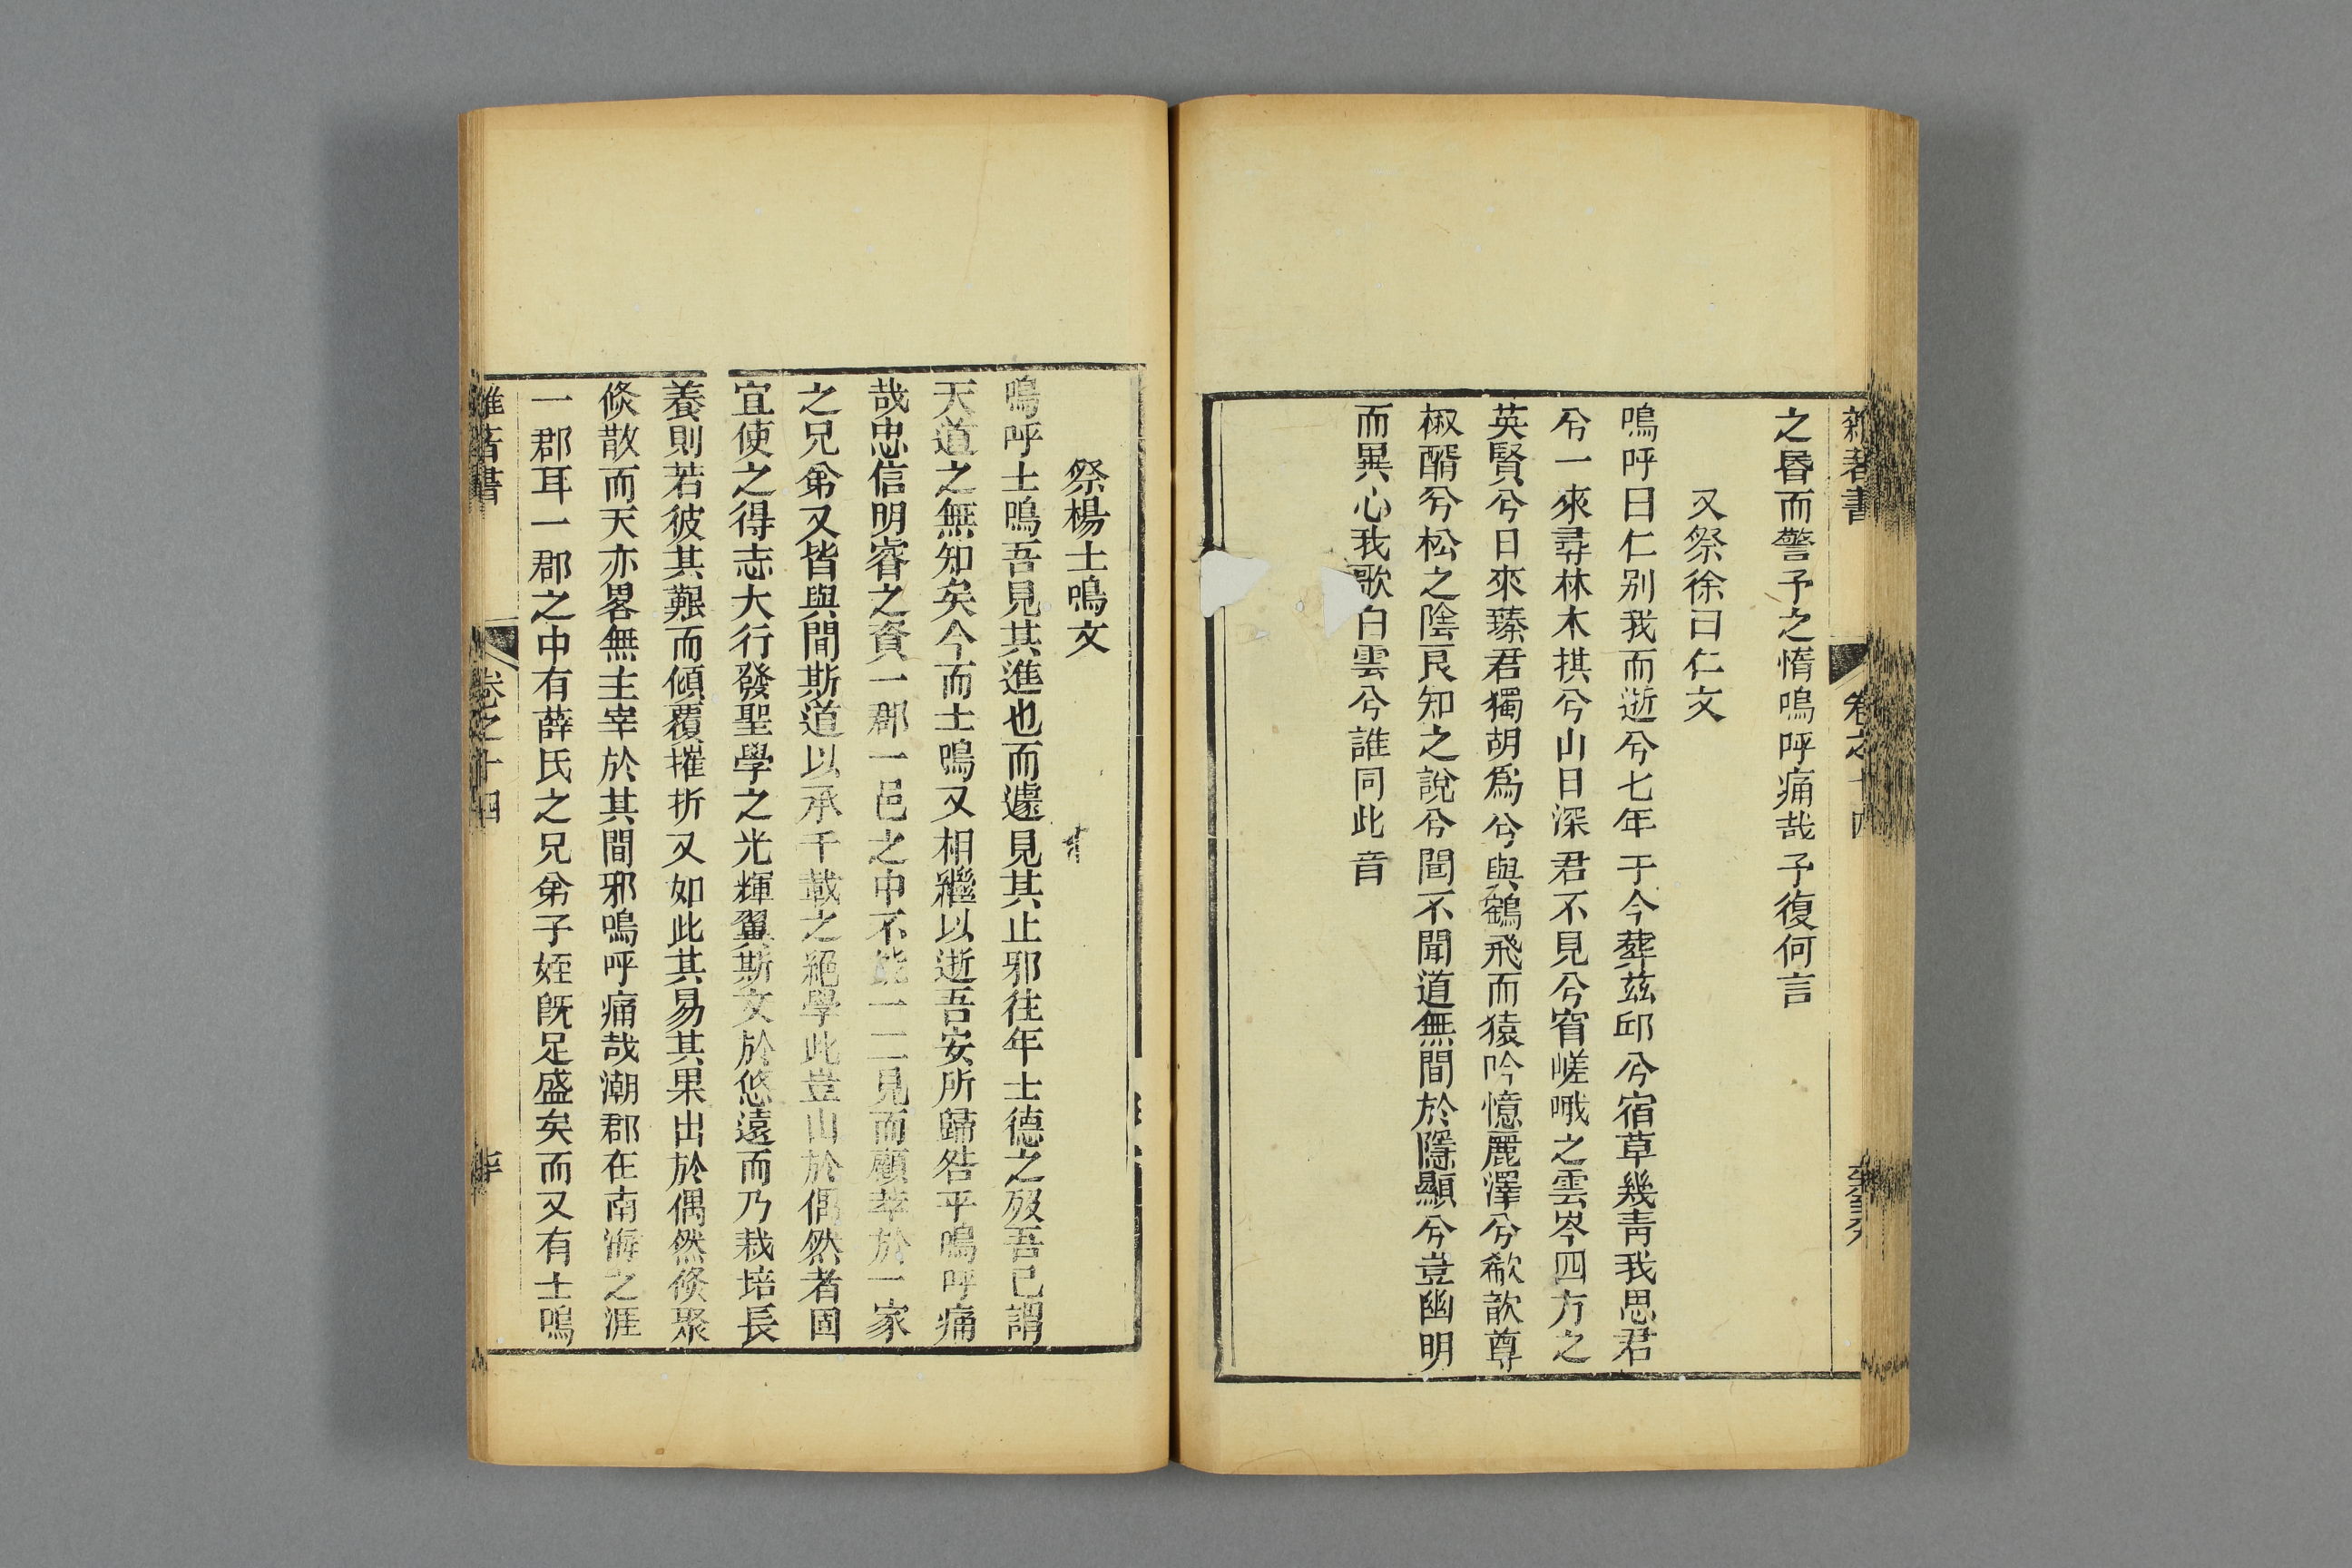 之昬而警予之惰嗚呼痛哉予復何言
又祭徐曰仁文
嗚呼曰仁别我而逝兮七年于今葬茲邱兮宿草幾青我思君
兮一來尋林木拱兮山日深君不見兮窅嵯峨之雲岑四方之
英賢兮日來臻君獨胡爲兮與鶴飛而猿吟憶麗澤兮欷歔尊
椒醑兮松之陰良知之說兮聞不聞道無間於隱顯兮豈幽明
而異心我歌白雲兮誰同此音
祭楊士鳴文
嗚呼士鳴吾見其進也而遽見其止邪往年士德之歿吾已謂
天道之無知矣今而士鳴又相繼以逝吾安所歸咎乎嗚呼痛
哉忠信明睿之資一郡一邑之中不能一二見而顧萃於一家
之兄弟又皆與間斯道以承千載之絕學此豈出於偶然者固
宜使之得志大行發聖學之光輝翼斯文於悠遠而乃栽培長
養則若彼其艱而傾覆摧折又如此其易其果出於偶然倐聚
倐散而天亦畧無主宰於其間邪嗚呼痛哉潮郡在南海之涯
一郡耳一郡之中有薛氏之兄弟子姪旣足盛矣而又有士鳴
卷之十四